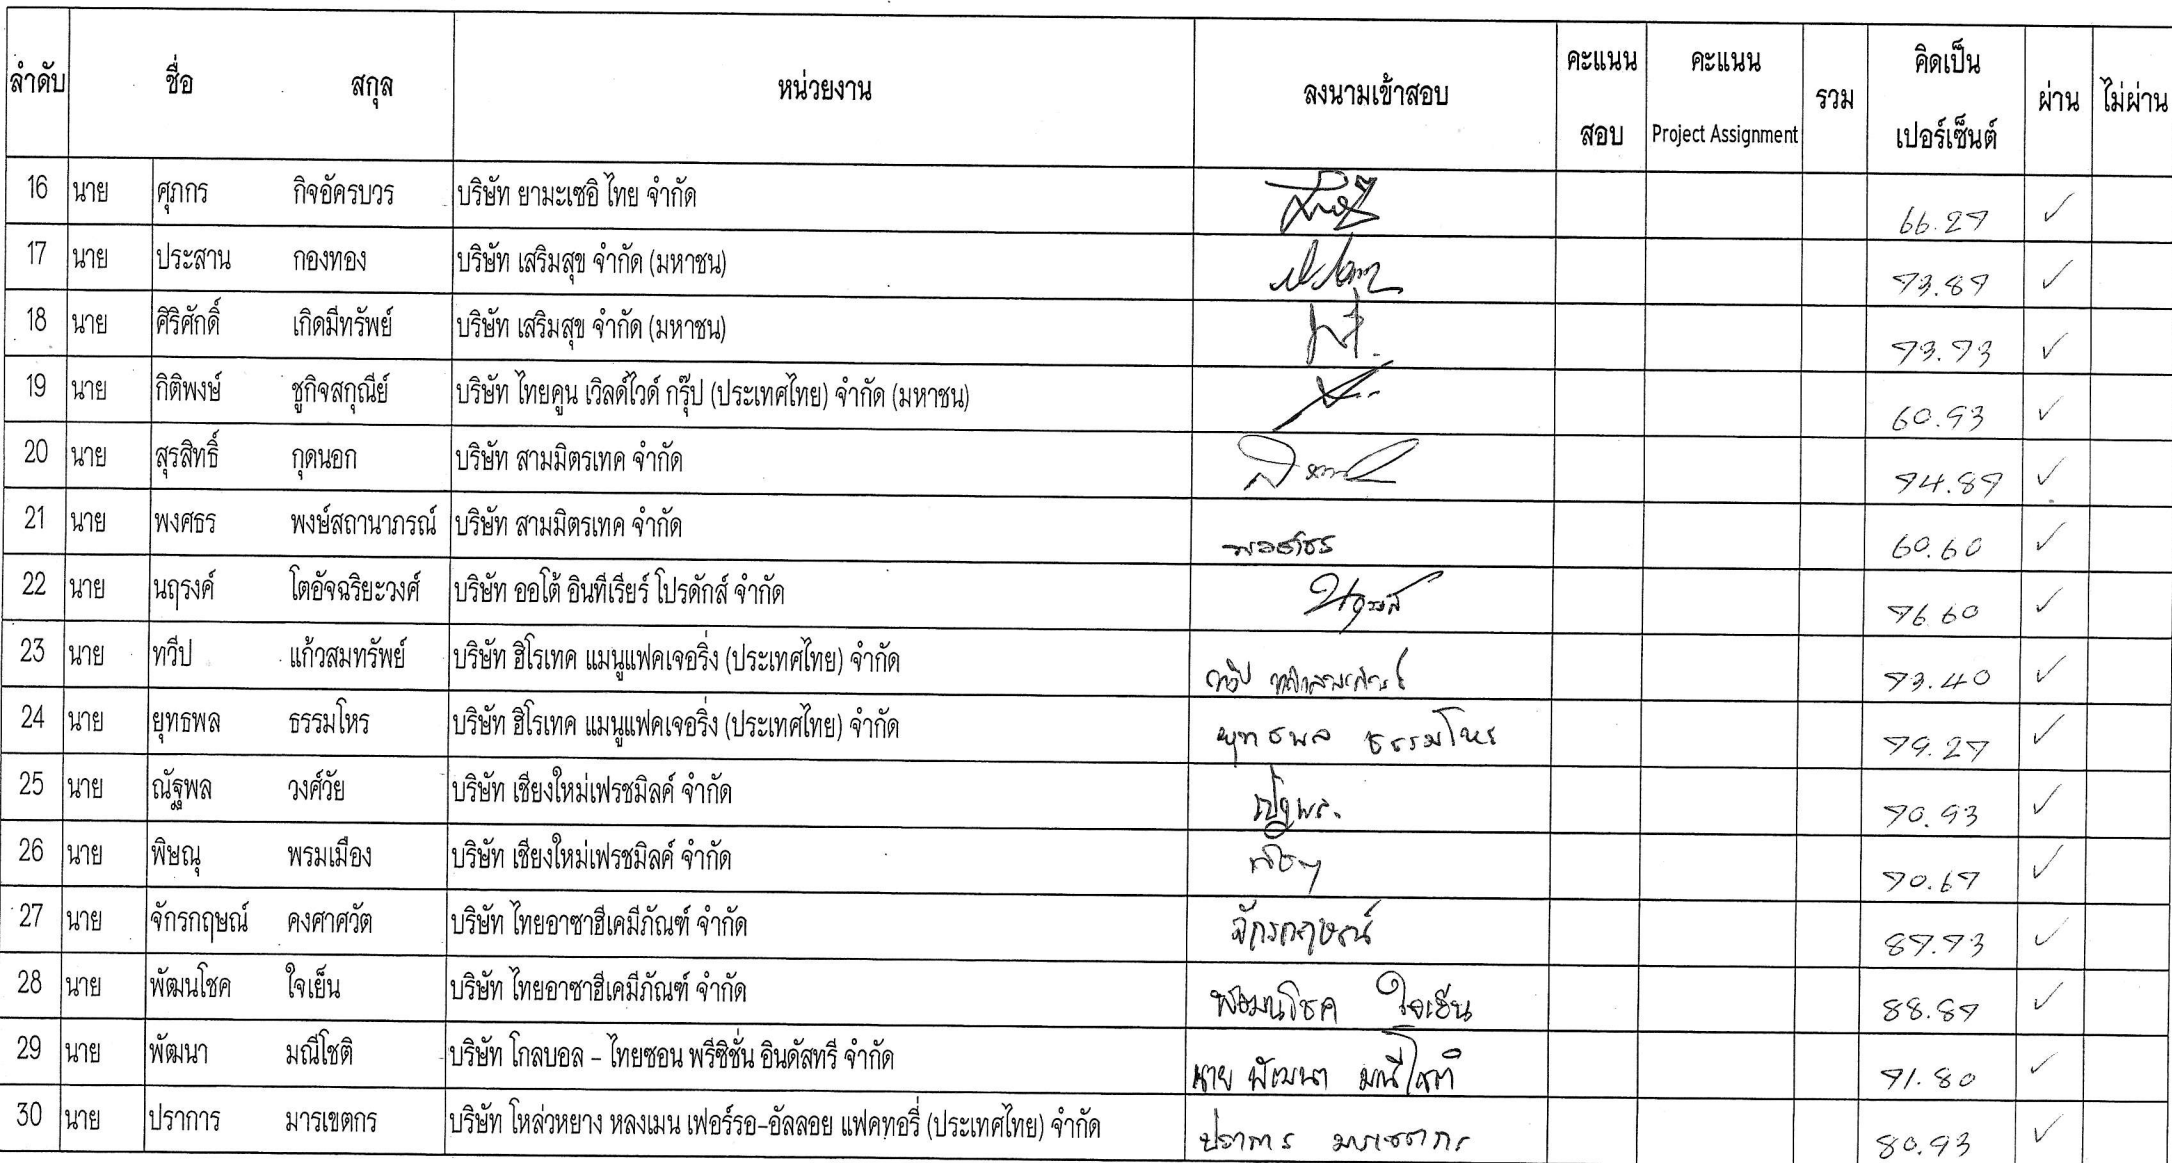 ลำดับ ชื่อ สกุล หน่วยงาน ลงนามเข้าสอบ คะแนนสอบ คะแนน Project Assignment รวม คิดเป็นเปอร์เซ็นต์ ผ่าน ไม่ผ่าน
16 นาย ศุภกร กิจอัครบวร บริษัท ยามะเซอิ ไทย จำกัด 66.27 ✓
17 นาย ประสาน กองทอง บริษัท เสริมสุข จำกัด (มหาชน) 73.87 ✓
18 นาย ศิริศักดิ์ เกิดมีทรัพย์ บริษัท เสริมสุข จำกัด (มหาชน) 73.73 ✓
19 นาย กิติพงษ์ ชูกิจสกุณีย์ บริษัท ไทยคูน เวิลด์ไวด์ กรุ๊ป (ประเทศไทย) จำกัด (มหาชน) 60.93 ✓
20 นาย สุรสิทธิ์ กุดนอก บริษัท สามมิตรเทค จำกัด 74.87 ✓
21 นาย พงศธร พงษ์สถานาภรณ์ บริษัท สามมิตรเทค จำกัด พงศธร 60.60 ✓
22 นาย นฤรงค์ โตอัจฉริยะวงศ์ บริษัท ออโต้ อินทีเรียร์ โปรดักส์ จำกัด 76.60 ✓
23 นาย ทวีป แก้วสมทรัพย์ บริษัท ฮิโรเทค แมนูแฟคเจอริ่ง (ประเทศไทย) จำกัด ทวีป แก้วสมทรัพย์ 73.40 ✓
24 นาย ยุทธพล ธรรมโหร บริษัท ฮิโรเทค แมนูแฟคเจอริ่ง (ประเทศไทย) จำกัด ยุทธพล ธรรมโหร 79.27 ✓
25 นาย ณัฐพล วงศ์วัย บริษัท เชียงใหม่เฟรชมิลค์ จำกัด ณัฐพล. 70.93 ✓
26 นาย พิษณุ พรมเมือง บริษัท เชียงใหม่เฟรชมิลค์ จำกัด 70.67 ✓
27 นาย จักรกฤษณ์ คงศาศวัต บริษัท ไทยอาซาฮีเคมีภัณฑ์ จำกัด จักรกฤษณ์ 87.73 ✓
28 นาย พัฒนโชค ใจเย็น บริษัท ไทยอาซาฮีเคมีภัณฑ์ จำกัด พัฒนโชค ใจเย็น 88.87 ✓
29 นาย พัฒนา มณีโชติ บริษัท โกลบอล - ไทยซอน พรีซิชั่น อินดัสทรี จำกัด นาย พัฒนา มณีโชติ 71.80 ✓
30 นาย ปราการ มารเขตกร บริษัท โหล่วหยาง หลงเมน เฟอร์รอ-อัลลอย แฟคทอรี่ (ประเทศไทย) จำกัด ปราการ มารเขตกร 80.93 ✓